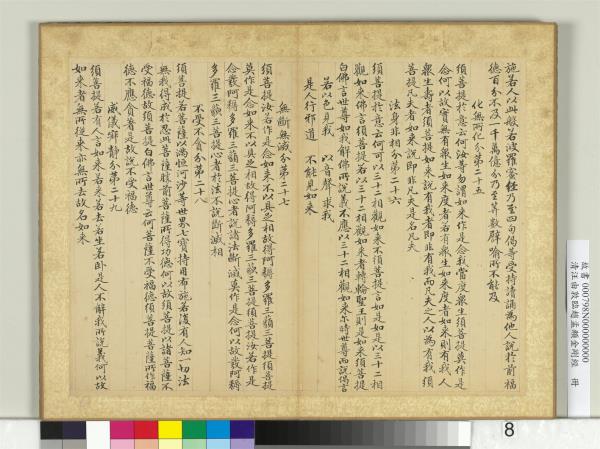 施若人以此般若波羅蜜經乃至四句偈等受持讀誦為他人說於前福
德百分不及一千萬億分乃至算數譬喻所不能及
化無所化分第二十五
須菩提於意云何汝等勿謂如來作是念我當度眾生須菩提莫作是
念何以故實無有眾生如來度者若有眾生如來度者如來則有我人
眾生壽者須菩提如來說有我者即非有我而凡夫之人以為有我須
菩提凡夫者如來說即非凡夫是名凡夫
法身非相分第二十六
須菩提於意云何可以三十二相觀如來不須菩提言如是如是以三十二相
觀如來佛言須菩提若以三十二相觀如來者轉輪聖王則是如來須菩提
白佛言世尊如我解佛所說義不應以三十二相觀如來尔時世尊而說偈言
若以色見我 以音聲求我
是人行邪道 不能見如來
無斷無滅分第二十七
須菩提汝若作是念如來不以具足相故得阿耨多羅三藐三菩提須菩提
莫作是念如來不以具足相故得阿耨多羅三藐三菩提須菩提汝若作是
念發阿耨多羅三藐三菩提心者說諸法斷滅莫作是念何以故發阿耨
多羅三藐三菩提心者於法不說斷滅相
不受不貪分第二十八
須菩提若菩薩以滿恒河沙等世界七寶持用布施若復有人知一切法
無我得成於忍此菩薩勝前菩薩所得功德何以故須菩提以諸菩薩不
受福德故須菩提白佛言世尊云何菩薩不受福德須菩提菩薩所作福
德不應貪著是故說不受福德
威儀寂靜分第二十九
須菩提若有人言如來若來若去若坐若臥是人不解我所說義何以故
如來者無所從來亦無所去故名如來
故書 000798N000000000
清汪由敦臨趙孟頫金剛經 冊
8